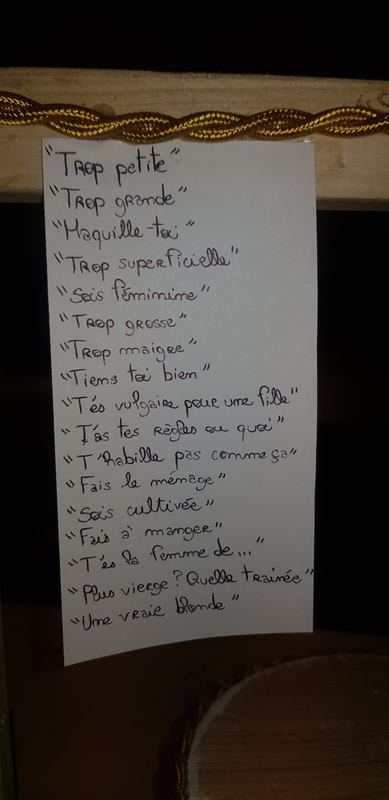 "Trop petite"
"Trop grande"
"Maquille-toi"
"Trop superficielle"
"Sois féminine"
"Trop grosse"
"Trop maigre"
"Tiens toi bien"
"T'és vulgaire pour une fille"
"T'as tes règles ou quoi"
"T'habille pas comme ça"
"Fais le ménage"
"Sois cultivée"
"Fais à manger"
"T'és la femme de..."
"Plus vierge? Quelle trainée"
"Une vraie blonde"